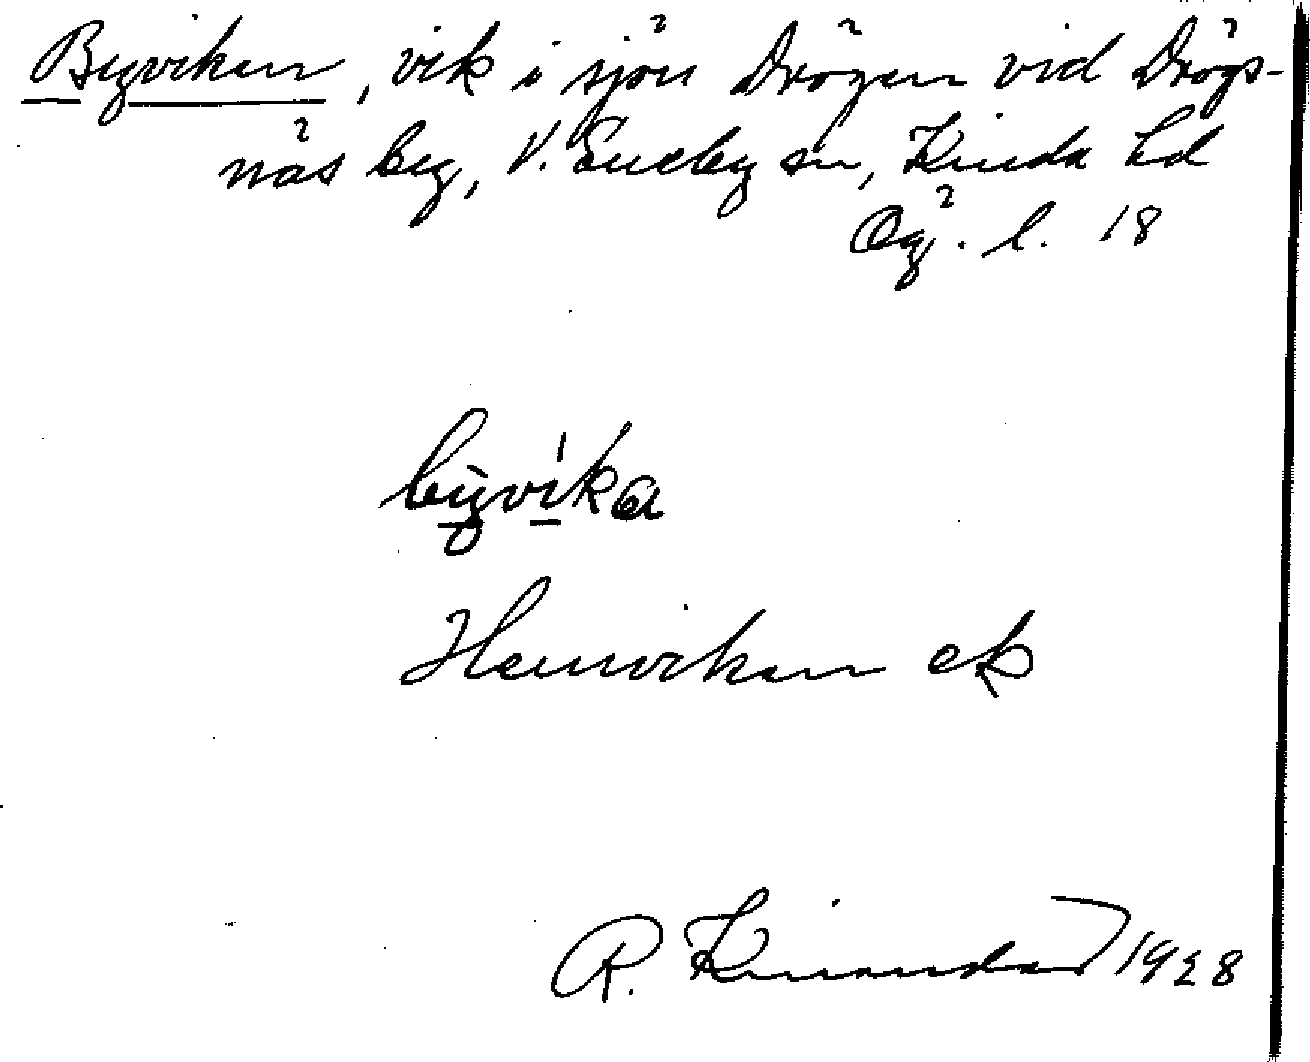 Byviken, vik i sjön Drögen vid Drögs-
näs by, V. Eneby sn, Kinda hd
Ög. l. 18
byvika
Hemviken ek
R. Kinander 1928